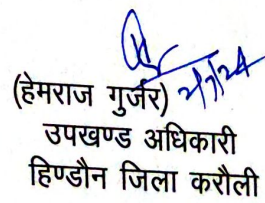 (हेमराज गुर्जर)
उपखण्ड अधिकारी
हिण्डौन जिला करौली